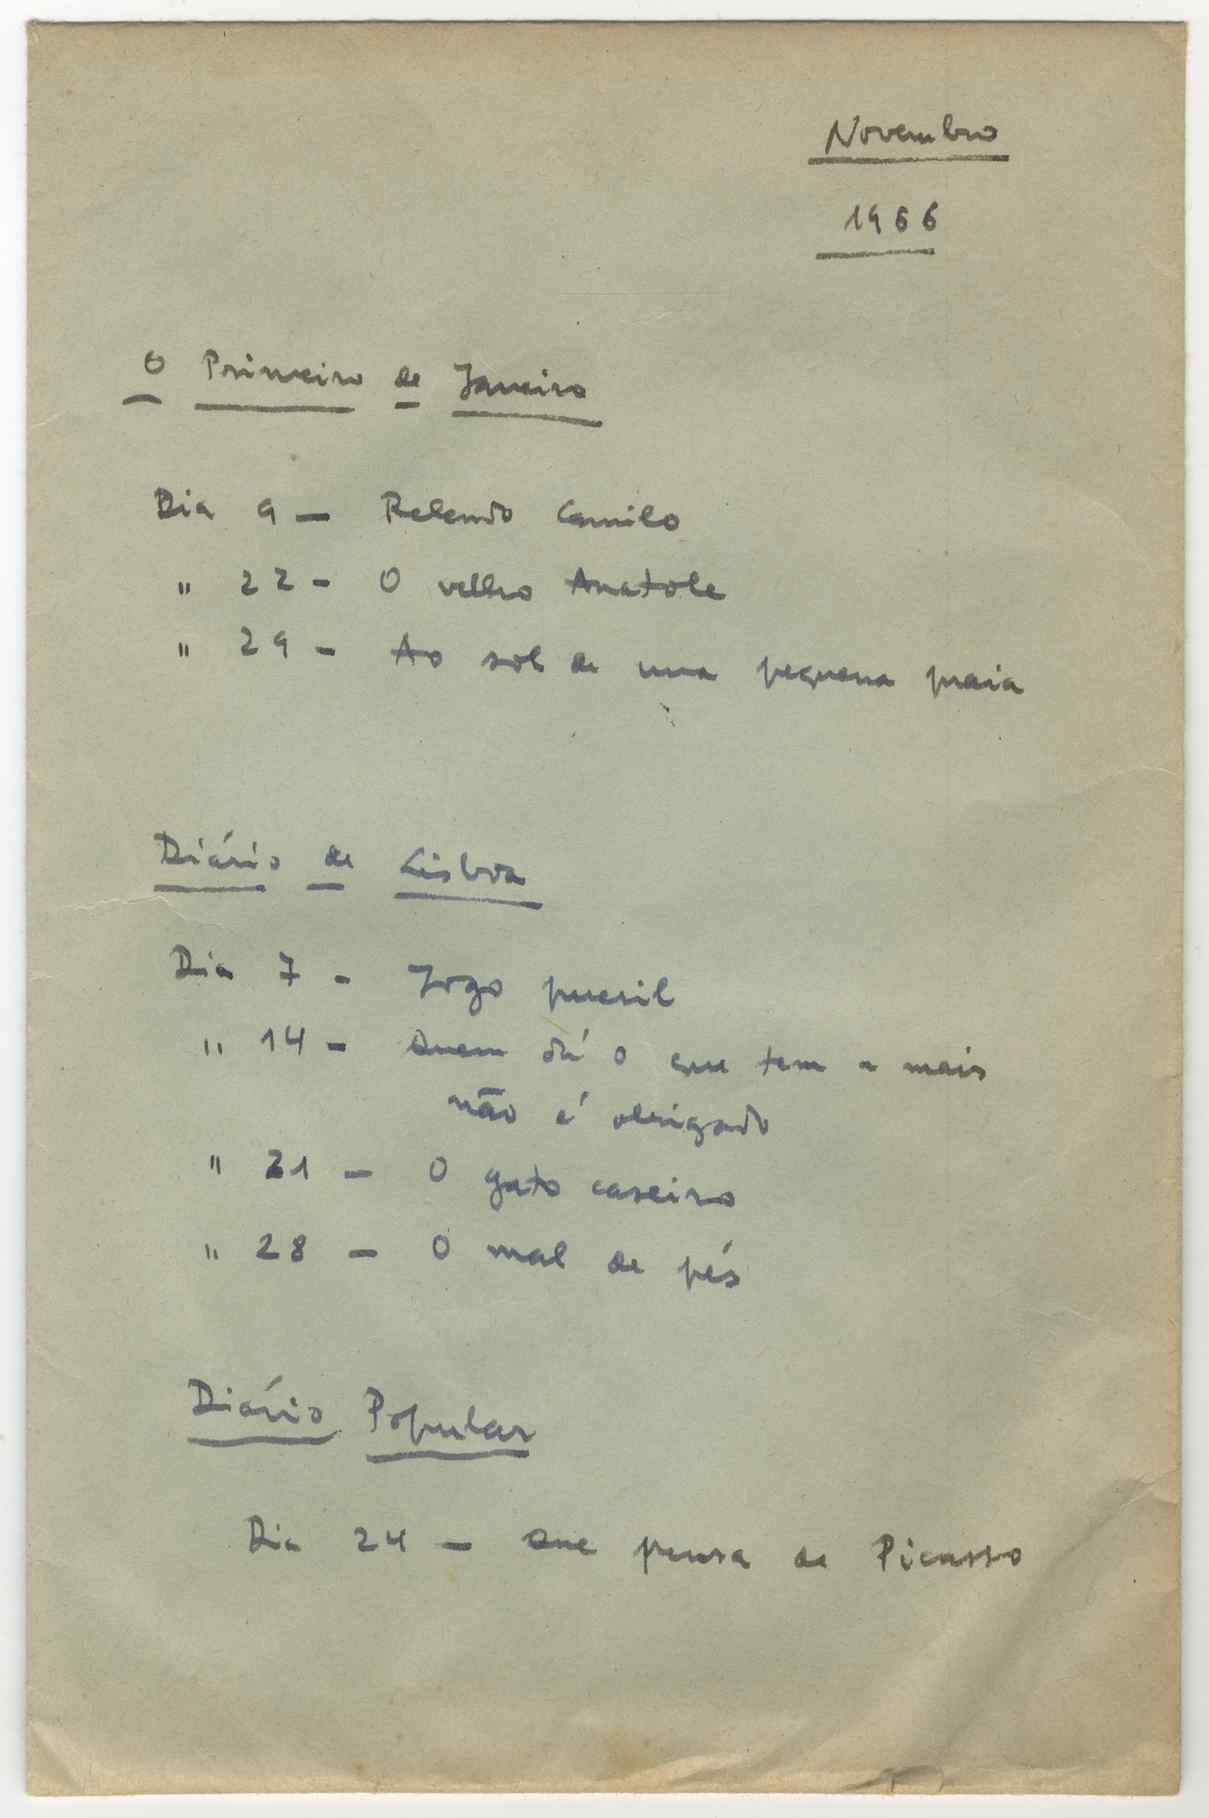 Novembro
1966
O Primeiro de Janeiro
Dia 9 — Relendo Camilo
" 22 - O velho Anatole
" 29 - Ao sol de uma pequena praia
Diário de Lisboa
Dia 7 - Jogo pueril
" 14 - Quem dá o que tem a mais
não é obrigado
" 21 — O gato caseiro
" 28 — O mal de pés
Diário Popular
Dia 24 — Que pensa de Picasso